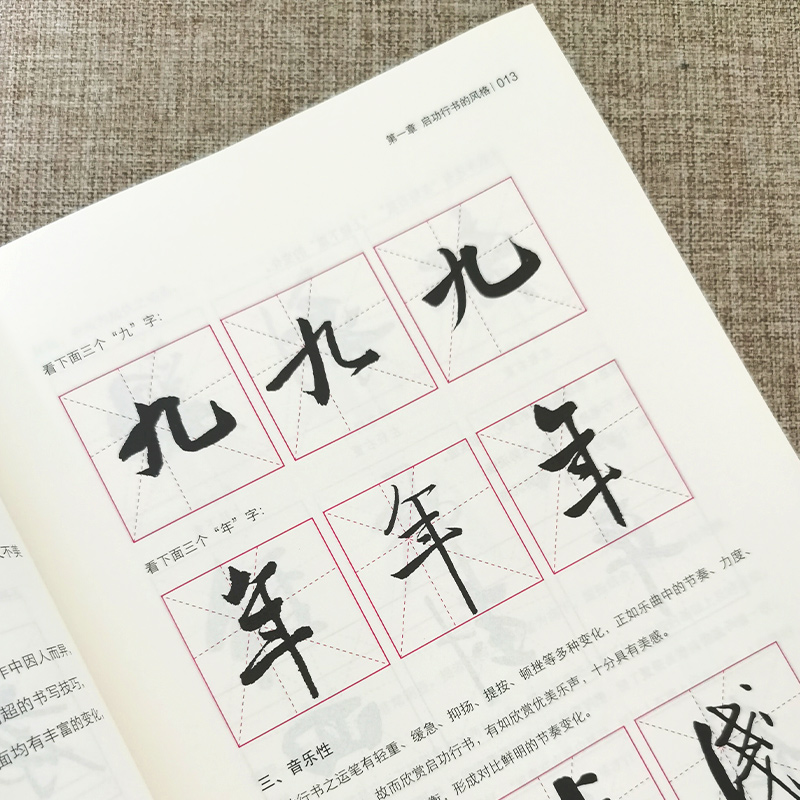 第一章 启功行书的风格|013
看下面三个“九”字:
九 九 九
看下面三个“年”字:
年 年 年
三、音乐性
行书之运笔有轻重、缓急、抑扬、提按、顿挫等多种变化,正如乐曲中的节奏、力度、
故而欣赏启功行书,有如欣赏优美乐声,十分具有美感。
形成对比鲜明的节奏变化。
作中因人而异
超的书写技巧,
面均有丰富的变化